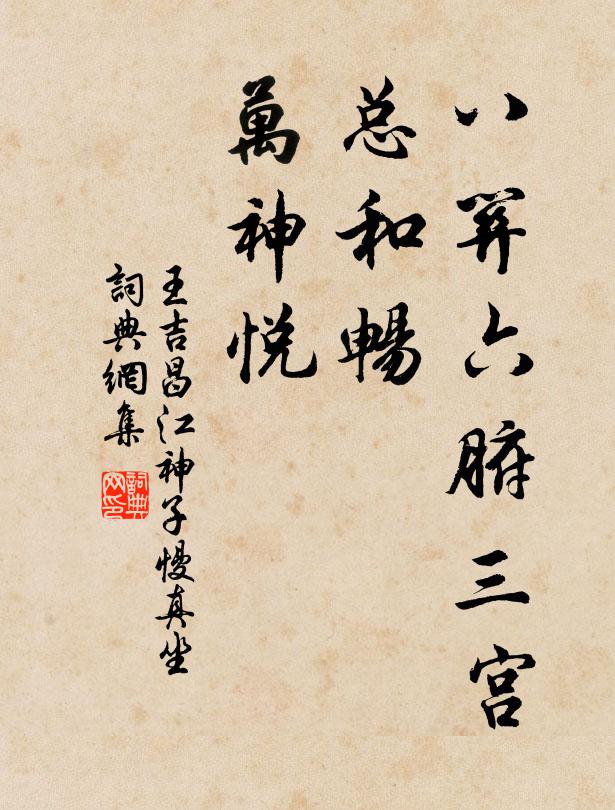 八六腑三宫
总和暢
萬神悦
王吉昌江神子慢真坐
詞典網集
詞典
网印